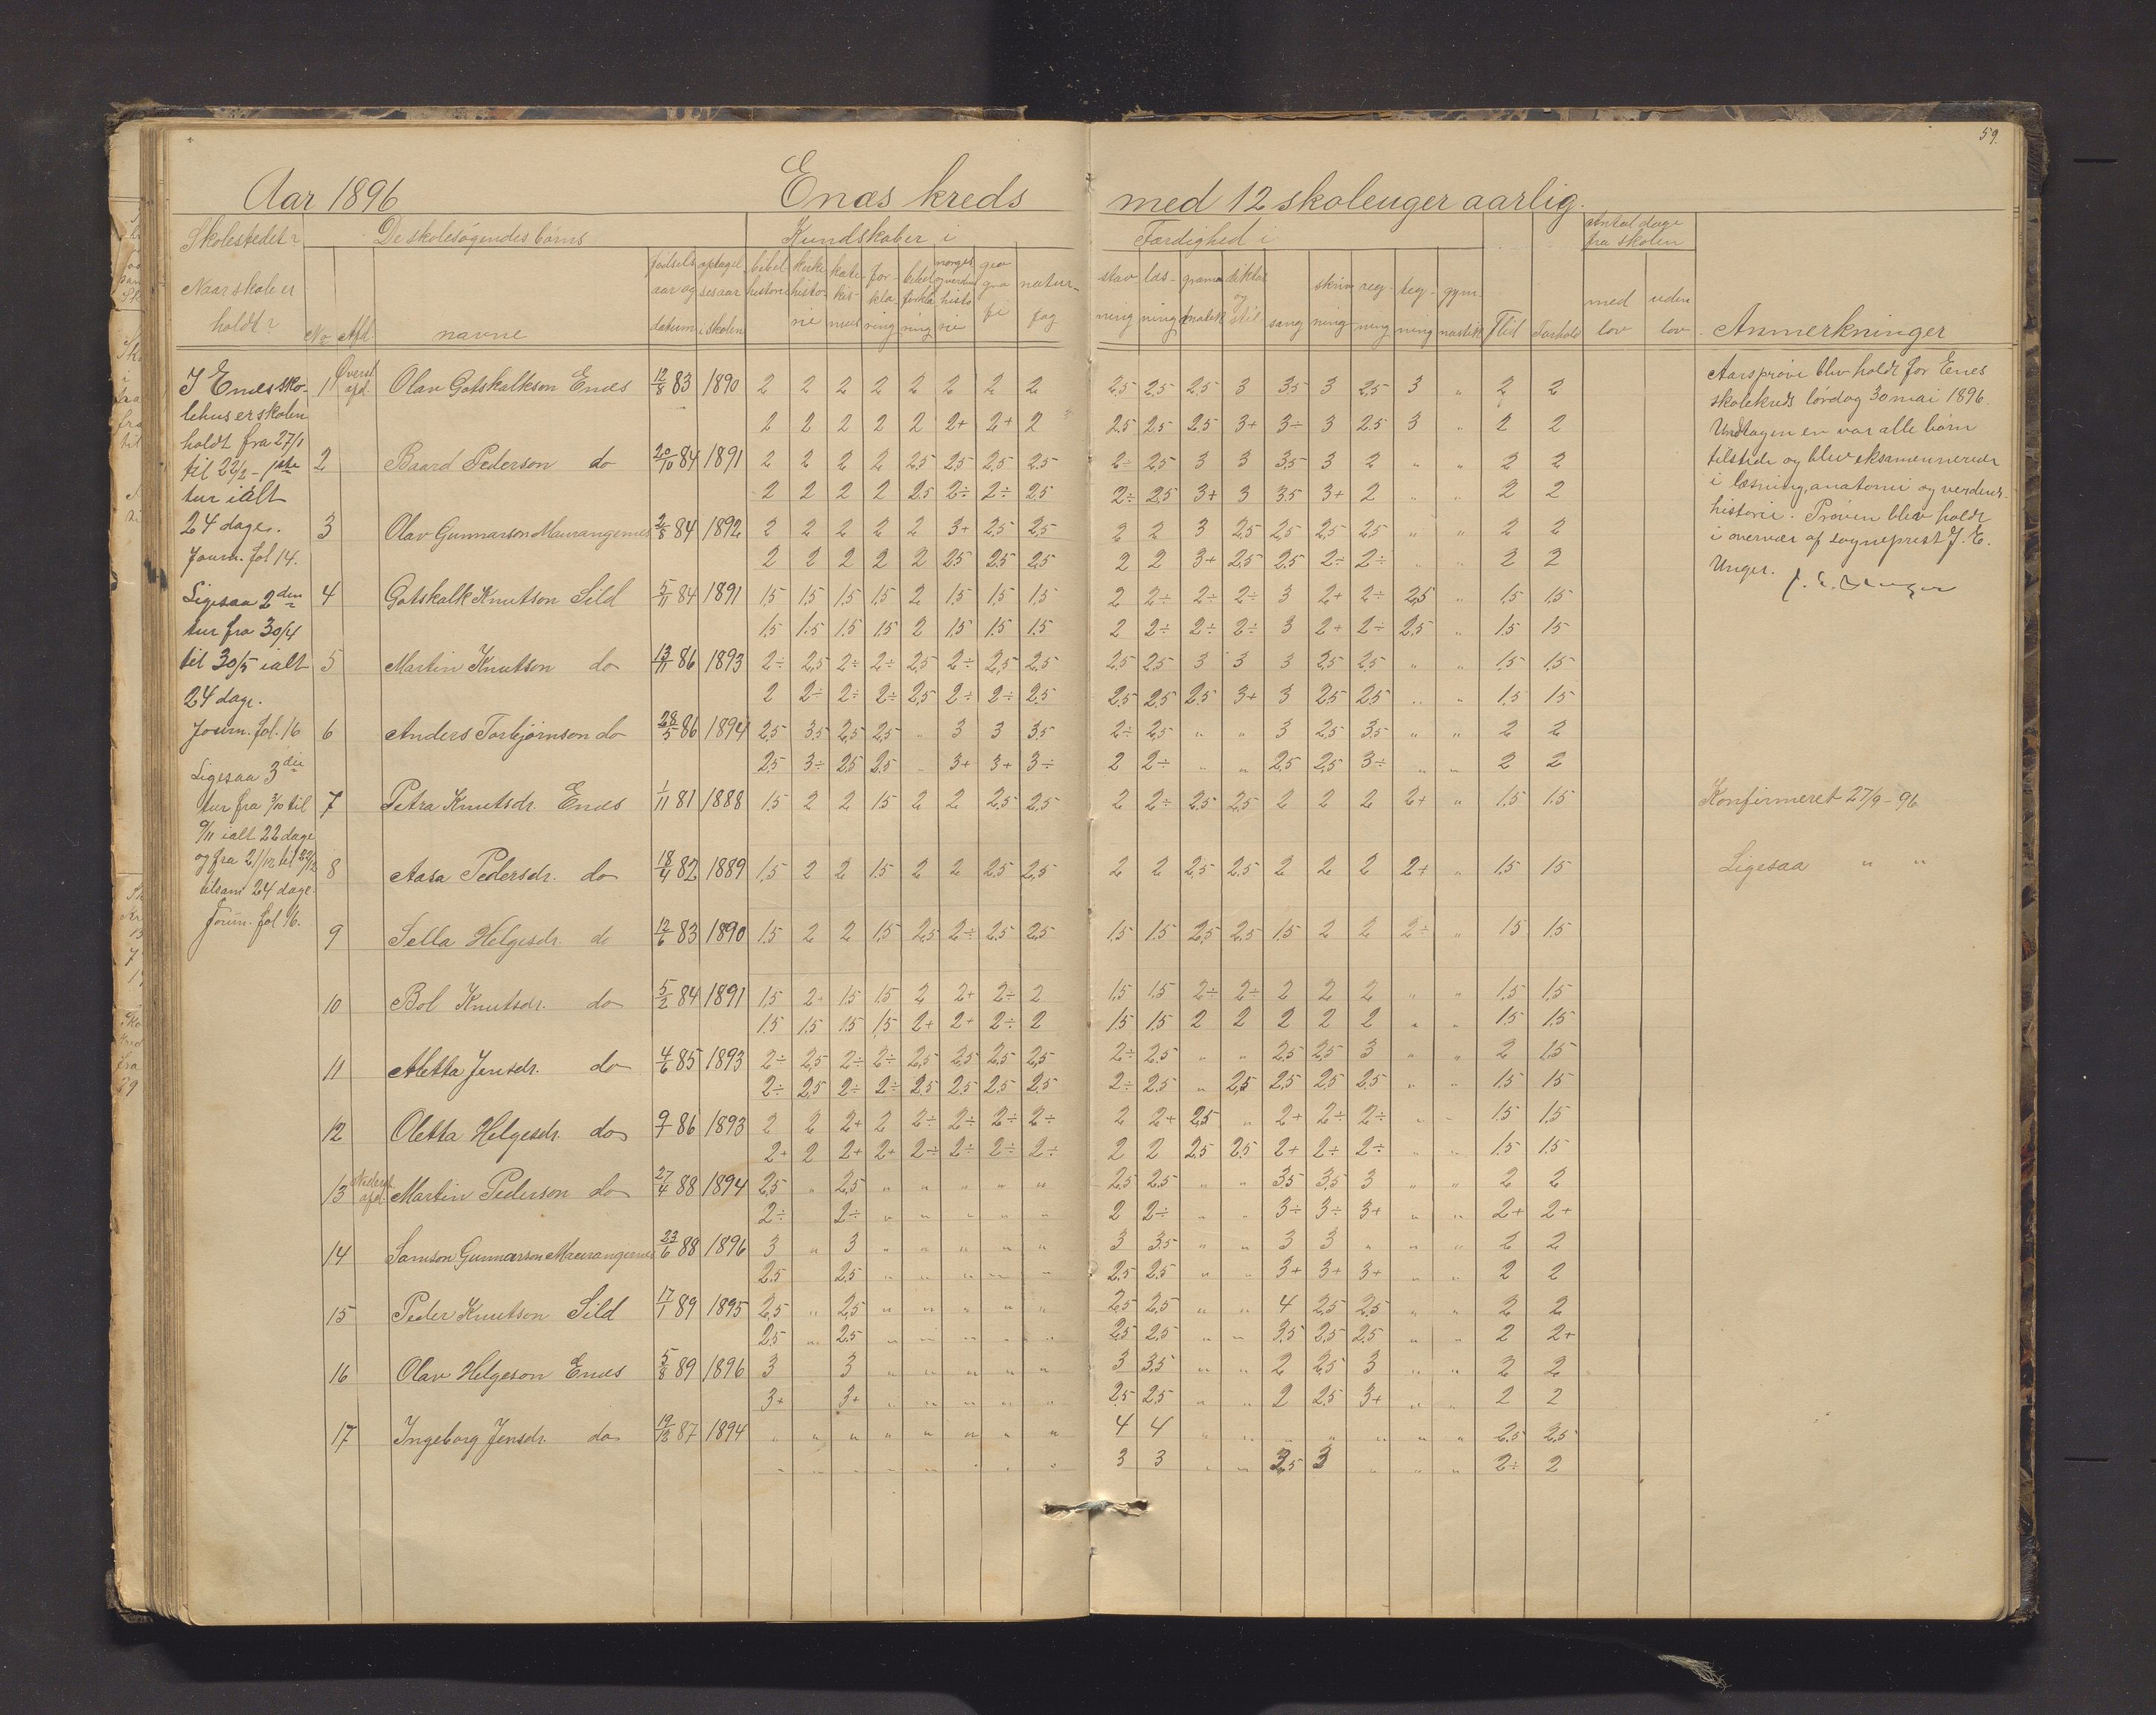 59.
Aar 1896 Enæs kreds med 12 skoleuger aarlig.
Skolestedet?
Naar skole er
holdt?
De skolesøgendes børns
No Afd. navne
fødsels aar og datum
optagelsesaar i skolen
Kundskaber i
bibelhistorie kirkehistorie katekismus forklaring
Færdighed i
stavning læsning sang skrivning regning tegning gymnastik Flid Forhold
Antal dage fra skolen
med lov uden lov
Anmerkninger
I Enes sko-
lehus er skolen
holdt fra 27/1
til 22/2 - 1ste
tur ialt
24 dage.
Journ. fol 14.
Ligesaa 2den
tur fra 30/4
til 30/5 ialt
24 dage.
Journ. fol. 16
Ligesaa 3die
tur fra 3/10 til
9/11 ialt 22 dage
og fra 21/12 til 22/12
tilsam 24 dage.
Journ. fol 16.
1 Øverst afd. Olav Gotskalkson Enes 12/8 83 1890 2 2 2 2 2 2 2 2 2,5 2,5 2,5 3 3,5 3 2,5 3 " 2 2
2 2 2 2 2 2+ 2+ 2 2,5 2,5 2,5 3+ 3÷ 3 2,5 3 " 2 2
2 Baard Pederson do 20/10 84 1891 2 2 2 2 2,5 2,5 2,5 2,5 2÷ 2,5 3 3 3,5 3 2 " " 2 2
2 2 2 2 2,5 2÷ 2÷ 2,5 2÷ 2,5 3+ 3 3,5 3+ 2 " " 2 2
3 Olav Gunnarson Maurangernes 2/8 84 1892 2 2 2 2 2 3+ 2,5 2,5 2 2 3 2,5 2,5 2,5 2,5 " " 2 2
2 2 2 2 2 2,5 2,5 2,5 2 2 3+ 2,5 2,5 2÷ 2÷ " " 2 2
4 Gotskalk Knutson Sild 5/11 84 1891 1,5 1,5 1,5 1,5 2 1,5 1,5 1,5 2 2÷ 2÷ 2÷ 3 2+ 2÷ 2,5 " 1,5 1,5
1,5 1,5 1,5 1,5 2 1,5 1,5 1,5 2 2÷ 2÷ 2÷ 3 2+ 2÷ 2,5 " 1,5 1,5
5 Martin Knutson do 13/11 86 1893 2÷ 2,5 2÷ 2÷ 2,5 2÷ 2,5 2,5 2,5 2,5 3 3 3 2,5 2,5 " " 1,5 1,5
2 2÷ 2÷ 2÷ 2,5 2÷ 2÷ 2,5 2,5 2,5 2,5 3+ 3 2,5 2,5 " " 1,5 1,5
6 Anders Torbjørnson do 28/5 86 1894 2,5 3,5 2,5 2,5 " 3 3 3,5 2÷ 2,5 " " 3 2,5 3,5 " " 2 2
2,5 3÷ 2,5 2,5 " 3+ 3+ 3÷ 2 2÷ " " 2,5 2,5 3÷ " " 2 2
7 Petra Knutsdr. Enes 1/11 81 1888 1,5 2 2 1,5 2 2 2,5 2,5 2 2÷ 2,5 2,5 2 2 2 2+ " 1,5 1,5 Konfirmeret 27/9-96
8 Aasa Pedersdr. do 18/4 82 1889 1,5 2 2 1,5 2 2 2,5 2,5 2 2 2,5 2,5 2 2 2 2+ " 1,5 1,5 Ligesaa " "
9 Sella Helgesdr. do 12/6 83 1890 1,5 2 2 1,5 2,5 2÷ 2,5 2,5 1,5 1,5 2,5 2,5 1,5 2 2 2÷ " 1,5 1,5
10 Bol Knutsdr. do 5/2 84 1891 1,5 2+ 1,5 1,5 2 2+ 2÷ 2 1,5 1,5 2÷ 2÷ 2 2 2 " " 1,5 1,5
1,5 1,5 1,5 1,5 2+ 2+ 2÷ 2 1,5 1,5 2 2 2 2 2 " " 1,5 1,5
11 Aletta Jensdr. do 4/6 85 1893 2÷ 2,5 2÷ 2÷ 2,5 2,5 2,5 2,5 2÷ 2,5 " " 2,5 2,5 3 " " 2 1,5
2÷ 2,5 2÷ 2÷ 2,5 2,5 2,5 2,5 2÷ 2,5 " 2,5 2,5 2,5 2,5 " " 1,5 1,5
12 Oletta Helgesdr. do 9/7 86 1893 2 2 2+ 2 2÷ 2÷ 2÷ 2÷ 2 2+ 2,5 " 2+ 2÷ 2÷ " " 1,5 1,5
2+ 2 2+ 2+ 2÷ 2÷ 2÷ 2÷ 2 2 2,5 2,5 2+ 2÷ 2÷ " " 1,5 1,5
13 Nederst afd. Martin Pederson do 27/4 88 1894 2,5 " 2,5 " " " " " 2,5 2,5 " " 3,5 3,5 3 " " 2 2
2÷ 2÷ " " " " " 2 2÷ " " 3÷ 3÷ 3+ " " 2+ 2+
14 Samson Gunnarson Maurangernes 23/6 88 1896 3 " 3 " " " " " 3 3,5 " " 3 3 " " " 2 2
2,5 2,5 " " " " " 2,5 2,5 " " 3+ 3+ 3+ " " 2 2
15 Peder Knutson Sild 17/1 89 1895 2,5 " 2,5 " " " " " 2,5 2,5 " " 4 2,5 2,5 " " 2 2
2,5 " 2,5 " " " " " 2,5 2,5 " " 3,5 2,5 2,5 " " 2 2+
16 Olav Helgeson Enes 5/8 89 1896 3 3 " " " " " 3 3,5 " " 2 2,5 3 " " 2 2
3+ 3+ " " " " " 2,5 2,5 " " 2 2,5 3+ " " 2 2
17 Ingeborg Jensdr. do 19/12 87 1894 " " " " " " " " 4 4 " " " " " " " 2,5 2,5
" " " " " " " " 3 3 " " 3 " " " 2÷ 2
Aarsprøve blev holdt for Enes
skolekreds lørdag 30 mai 1896.
Undtagen en var alle børn
tilstede og blev eksamenerede
i læsning, anatomi og verdens-
historie. Prøven blev holdt
i overvær af sogneprest J. E.
Unger.
J. E. Unger